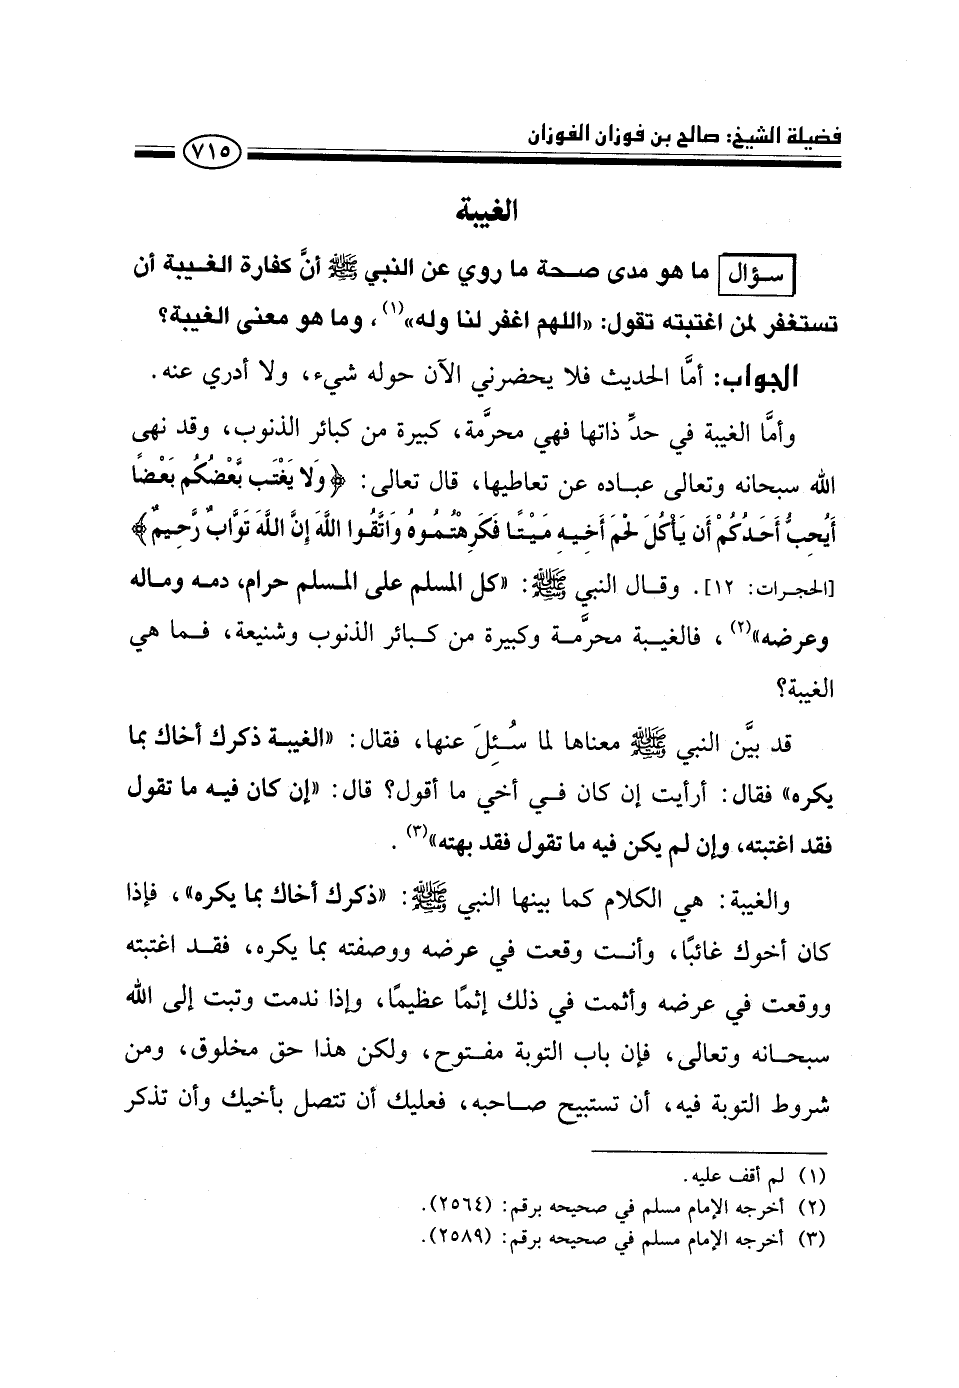 فضيلة الشيخ: صالح بن فوزان الفوزان
٧١٥
الغيبة
سؤال ما هو مدى صحة ما روي عن النبي ﷺ أنَّ كفارة الغيبة أن
تستغفر لمن اغتبته تقول: «اللهم اغفر لنا وله»(١)، وما هو معنى الغيبة؟
الجواب: أمَّا الحديث فلا يحضرني الآن حوله شيء، ولا أدري عنه.
وأمَّا الغيبة في حدِّ ذاتها فهي محرمَّة، كبيرة من كبائر الذنوب، وقد نهى
الله سبحانه وتعالى عباده عن تعاطيها، قال تعالى: ﴿وَلَا يَغْتَب بَّعْضُكُم بَعْضًا
أَيُحِبُّ أَحَدُكُمْ أَن يَأْكُلَ لَحْمَ أَخِيهِ مَيْتًا فَكَرِهْتُمُوهُ وَاتَّقُوا اللَّهَ إِنَّ اللَّهَ تَوَّابٌ رَّحِيمٌ﴾
[الحجرات: ١٢]. وقال النبي ﷺ: «كل المسلم على المسلم حرام، دمه وماله
وعرضه»(٢)، فالغيبة محرمَّة وكبيرة من كبائر الذنوب وشنيعة، فما هي
الغيبة؟
قد بيَّن النبي ﷺ معناها لما سُئِلَ عنها، فقال: «الغيبة ذكرك أخاك بما
يكره» فقال: أرأيت إن كان في أخي ما أقول؟ قال: «إن كان فيه ما تقول
فقد اغتبته، وإن لم يكن فيه ما تقول فقد بهته»(٣).
والغيبة: هي الكلام كما بينها النبي ﷺ: «ذكرك أخاك بما يكره»، فإذا
كان أخوك غائبًا، وأنت وقعت في عرضه ووصفته بما يكره، فقد اغتبته
ووقعت في عرضه وأثمت في ذلك إثمًا عظيمًا، وإذا ندمت وتبت إلى الله
سبحانه وتعالى، فإن باب التوبة مفتوح، ولكن هذا حق مخلوق، ومن
شروط التوبة فيه، أن تستبيح صاحبه، فعليك أن تتصل بأخيك وأن تذكر
(١) لم أقف عليه.
(٢) أخرجه الإمام مسلم في صحيحه برقم: (٢٥٦٤).
(٣) أخرجه الإمام مسلم في صحيحه برقم: (٢٥٨٩).